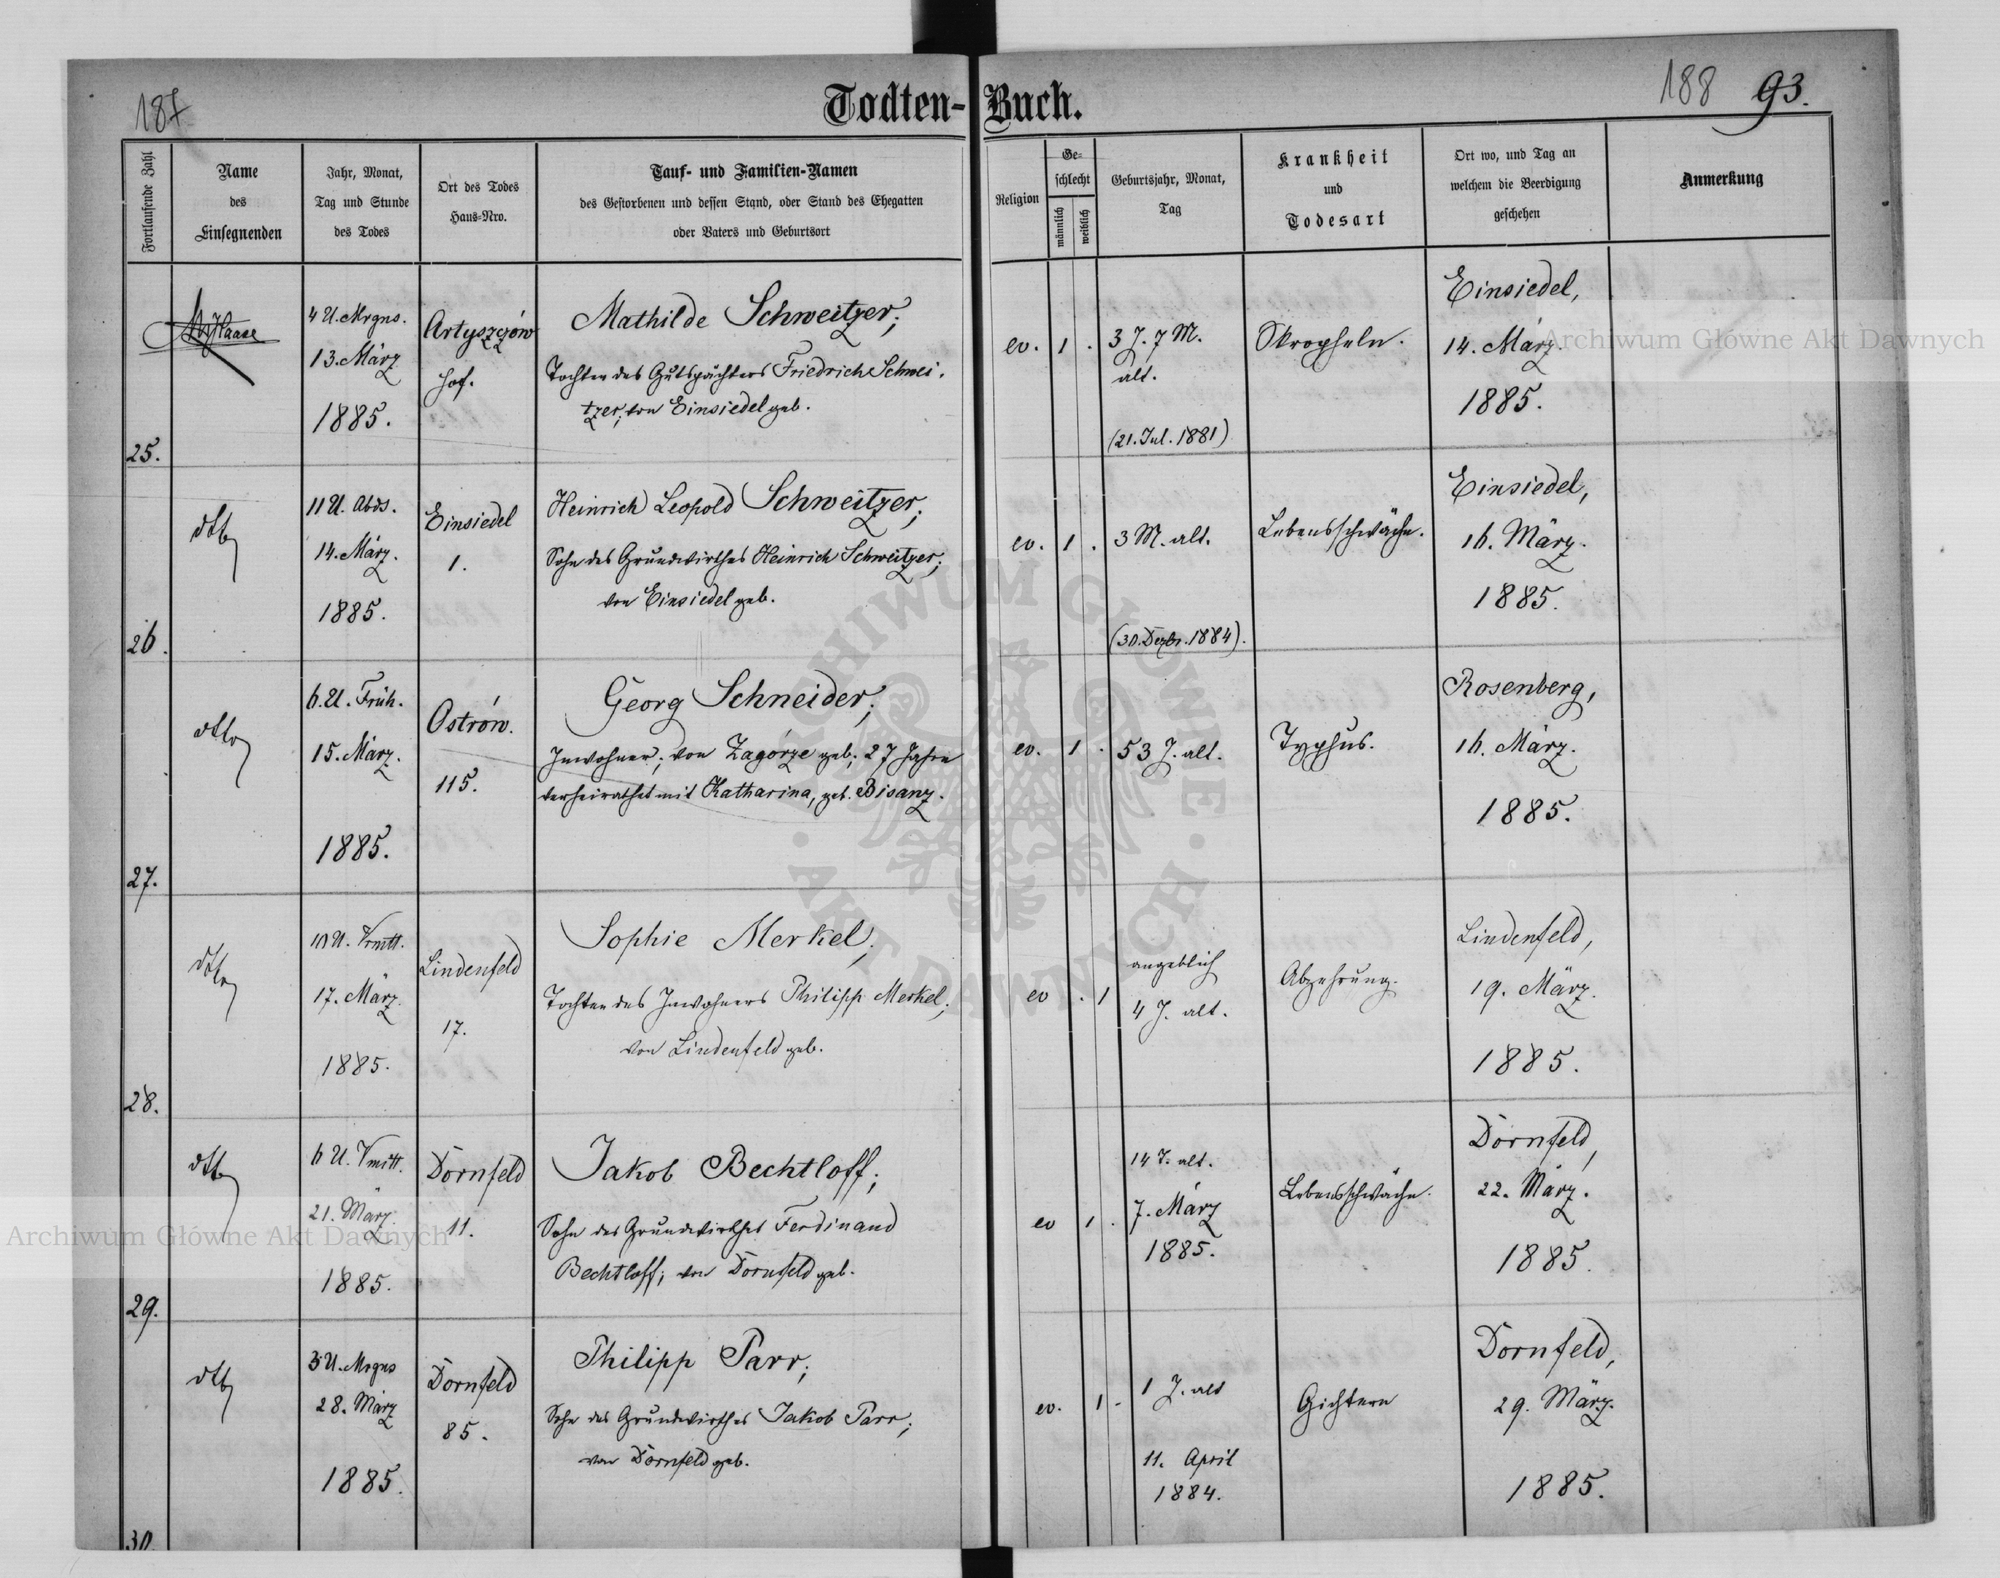 187
188 93.
Todten-Buch.
Fortlaufende Zahl
Name
des
Einsegnenden
Jahr, Monat,
Tag und Stunde
des Todes
Ort des Todes
Haus-Nro.
Tauf- und Familien-Namen
des Gestorbenen und dessen Stand, oder Stand des Ehegatten
oder Vaters und Geburtsort
Religion
Ge-
schlecht
männlich
weiblich
Geburtsjahr, Monat,
Tag
Krankheit
und
Todesart
Ort wo, und Tag an
welchem die Beerdigung
geschehen
Anmerkung
25.
Haase
4 U. Mrgns.
13. März
1885.
Artyszczów
Hof.
Mathilde Schweitzer;
Tochter des Gutspächters Friedrich Schwei-
tzer; von Einsiedel geb.
ev. 1 .
3 J. 7 M.
alt.
(21. Jul. 1881)
Skropheln.
Einsiedel,
14. März.
1885.
26.
dtto
11 U. Abds.
14. März.
1885.
Einsiedel
1.
Heinrich Leopold Schweitzer;
Sohn des Grundwirthes Heinrich Schweitzer;
von Einsiedel geb.
ev. 1 .
3 M. alt.
(30. Dezbr. 1884).
Lebensschwäche.
Einsiedel,
16. März.
1885.
27.
dtto
6. U. Früh.
15. März.
1885.
Ostrów.
115.
Georg Schneider;
Inwohner; von Zagórze geb.; 27 Jahre
verheirathet mit Katharina, geb. Bisanz.
ev. 1 .
53 J. alt.
Typhus.
Rosenberg,
16. März.
1885.
28.
dtto
10 U. Vrmitt.
17. März.
1885.
Lindenfeld
17.
Sophie Merkel;
Tochter des Inwohners Philipp Merkel;
von Lindenfeld geb.
ev . 1
angeblich
4 J. alt.
Abzehrung.
Lindenfeld,
19. März.
1885.
29.
dtto
6 U. Vmitt.
21. März.
1885.
Dornfeld
11.
Jakob Bechtloff;
Sohn des Grundwirthes Ferdinand
Bechtloff; von Dornfeld geb.
ev 1 .
14 T. alt.
7. März
1885.
Lebensschwäche.
Dornfeld,
22. März.
1885.
30.
dtto
3 U. Mrgns
28. März
1885.
Dornfeld
85.
Philipp Parr;
Sohn des Grundwirthes Jakob Parr;
von Dornfeld geb.
ev. 1 .
1 J. alt
11. April
1884.
Gichtern
Dornfeld,
29. März.
1885.
Archiwum Główne Akt Dawnych
Archiwum Główne Akt Dawnych
ARCHIWUM GŁÓWNE · AKT DAWNYCH ·